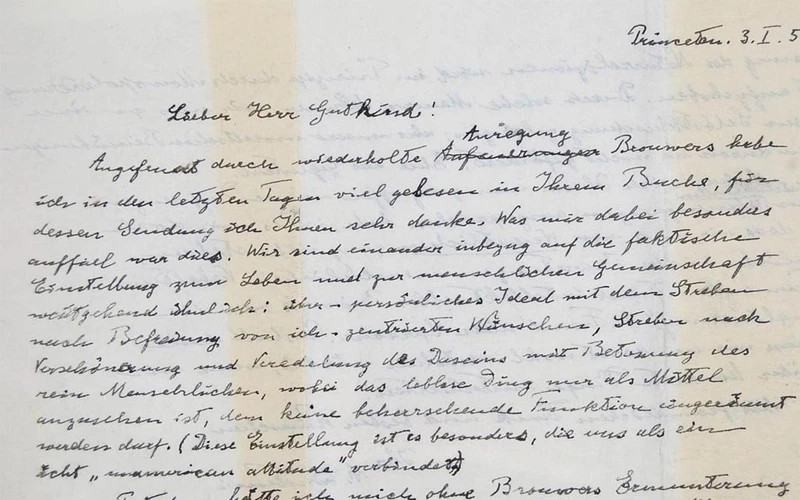 Princeton. 3. I. 5
Lieber Herr Gutkind!
Anregung
Angefeuert durch wiederholte Brouwers habe
ich in den letzten Tagen viel gelesen in Ihrem Buche, für
dessen Sendung ich Ihnen sehr danke. Was mir dabei besonders
auffiel war dies. Wir sind einander inbezug auf die faktische
Einstellung zum Leben und zur menschlichen Gemeinschaft
weitgehend ähnlich: über-persönliches Ideal mit dem Streben
nach Befreiung von ich-zentrierten Wünschen, Streben nach
Verschönerung und Veredelung des Daseins mit Betonung des
rein Menschlichen, wobei das leblose Ding nur als Mittel
anzusehen ist, dem keine beherrschende Funktion eingeräumt
werden darf. (Diese Einstellung ist es besonders, die uns als ein
ächt „unamerican attitude" verbindet)
hätte ich mich ohne Brouwers Ermunterung